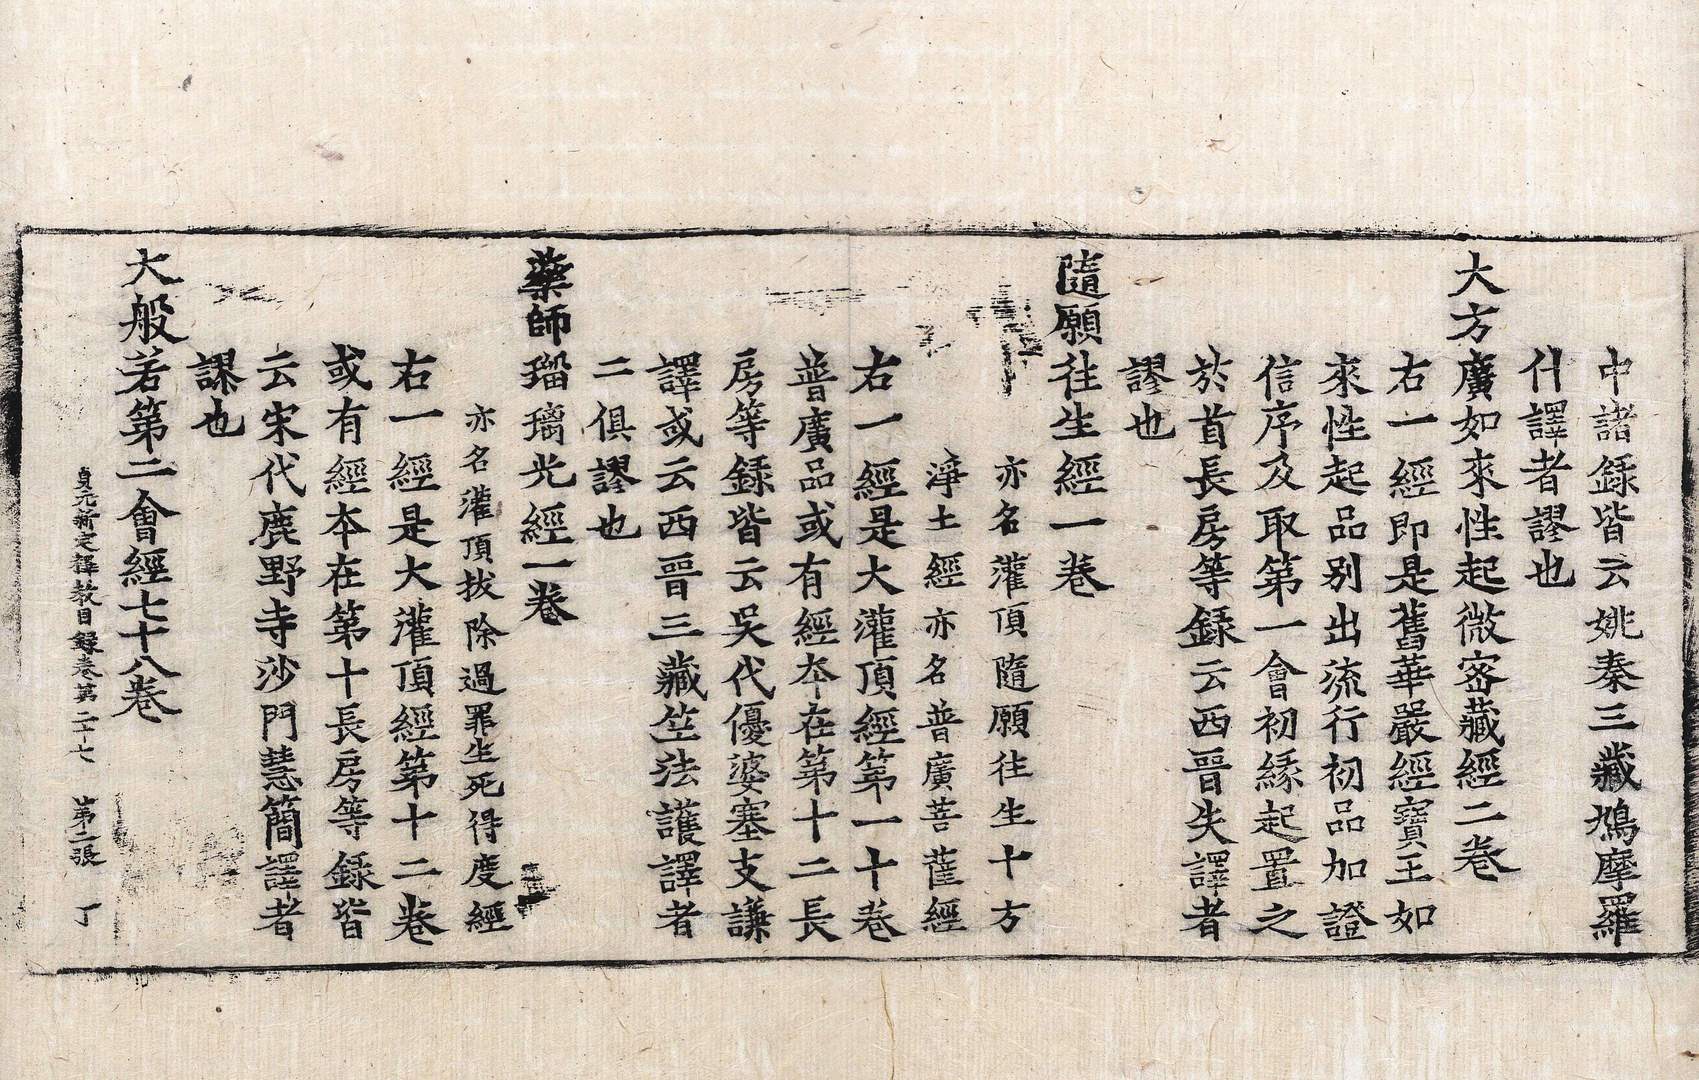 中諸録皆云姚秦三藏鳩摩羅
什譯者謬也
大方廣如來性起微密藏經二卷
右一經即是舊華嚴經寶王如
來性起品別出流行初品加證
信序及取第一會初緣起置之
於首長房等録云西晉失譯者
謬也
隨願往生經一卷
亦名灌頂隨願往生十方
淨土經亦名普廣菩薩經
右一經是大灌頂經第一十卷
普廣品或有經本在第十二長
房等録皆云吳代優婆塞支謙
譯或云西晉三藏竺法護譯者
二俱謬也
藥師瑠璃光經一卷
亦名灌頂拔除過罪生死得度經
右一經是大灌頂經第十二卷
或有經本在第十長房等録皆
云宋代鹿野寺沙門慧簡譯者
謬也
大般若第二會經七十八卷
貞元新定釋教目録卷第二十七 第二張 丁